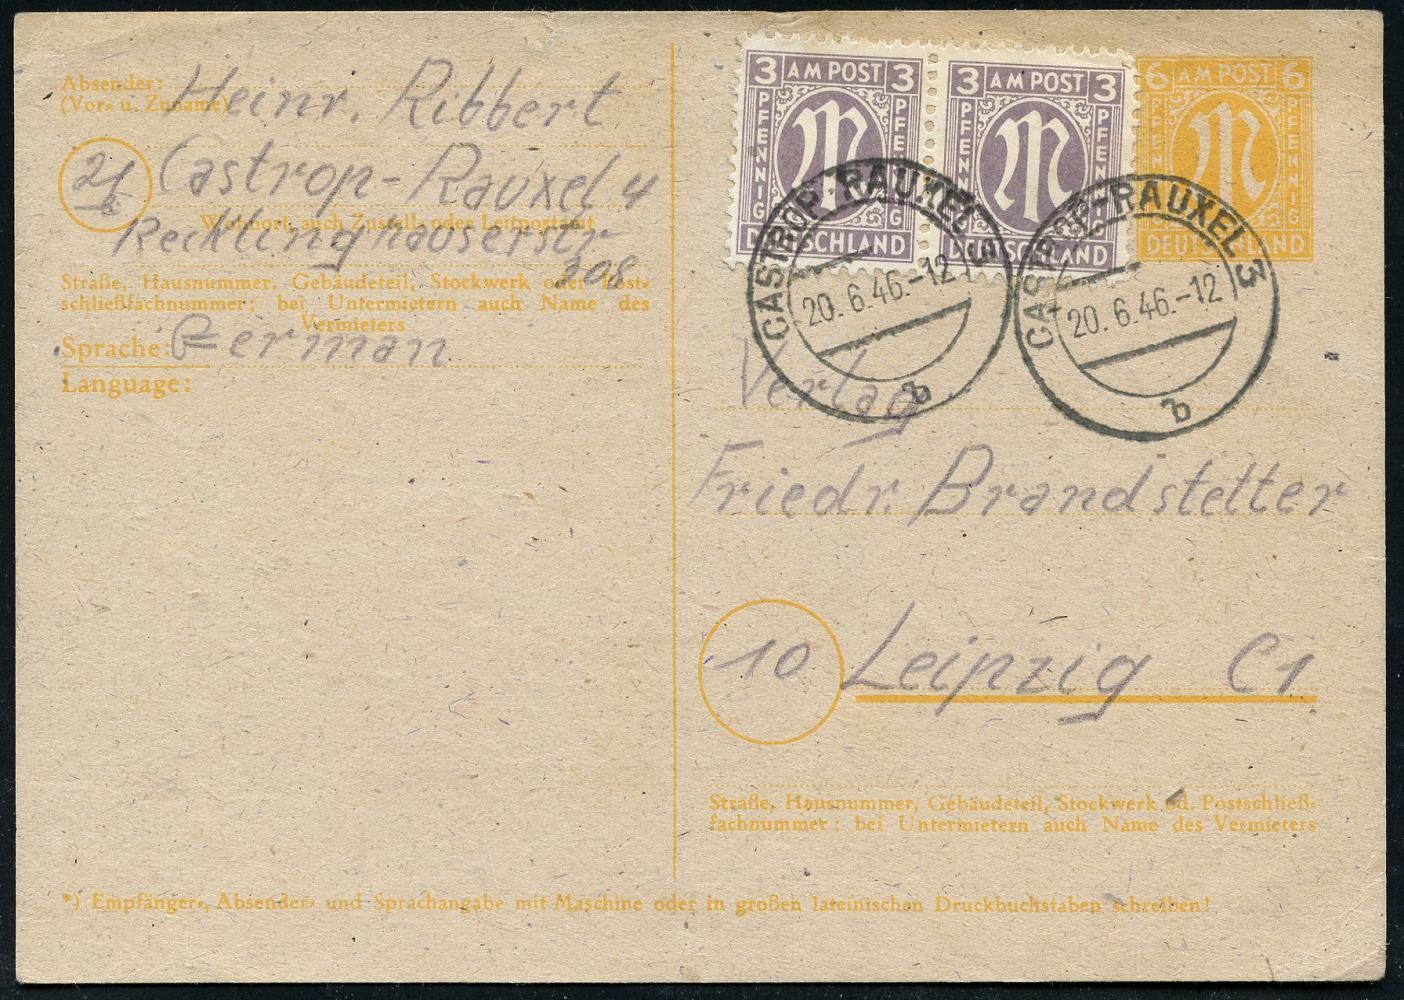 Absender:
(Vor- u. Zuname)
Heinr. Ribbert
Castrop-Rauxel 4
Wohnort, auch Zustell- oder Leitpostamt
Recklinghauserstr
208
Straße, Hausnummer, Gebäudeteil, Stockwerk oder Post-
schließfachnummer; bei Untermietern auch Name des
Vermieters
Sprache: German
Language:
3 AM POST 3
PFENNIG PFENNIG
DEUTSCHLAND
3 AM POST 3
PFENNIG PFENNIG
DEUTSCHLAND
6 AM POST 6
PFENNIG PFENNIG
DEUTSCHLAND
CASTROP-RAUXEL 3
20.6.46.-12
b
CASTROP-RAUXEL 3
20.6.46.-12
b
Verlag
Friedr. Brandstetter
10 Leipzig C1
Straße, Hausnummer, Gebäudeteil, Stockwerk od. Postschließ-
fachnummer; bei Untermietern auch Name des Vermieters
*) Empfänger-, Absender- und Sprachangabe mit Maschine oder in großen lateinischen Druckbuchstaben schreiben!